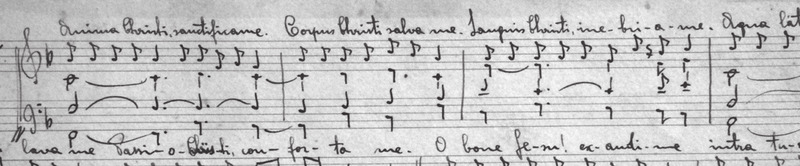 Anima Christi, santifica me. Corpus Christi, salva me. Sanguis Christi, ine-bri-a-me. Aqua lát
lava me Passi-o-Christi, con-for-ta me. O bone Je-su! ex-audi-me intra tu-